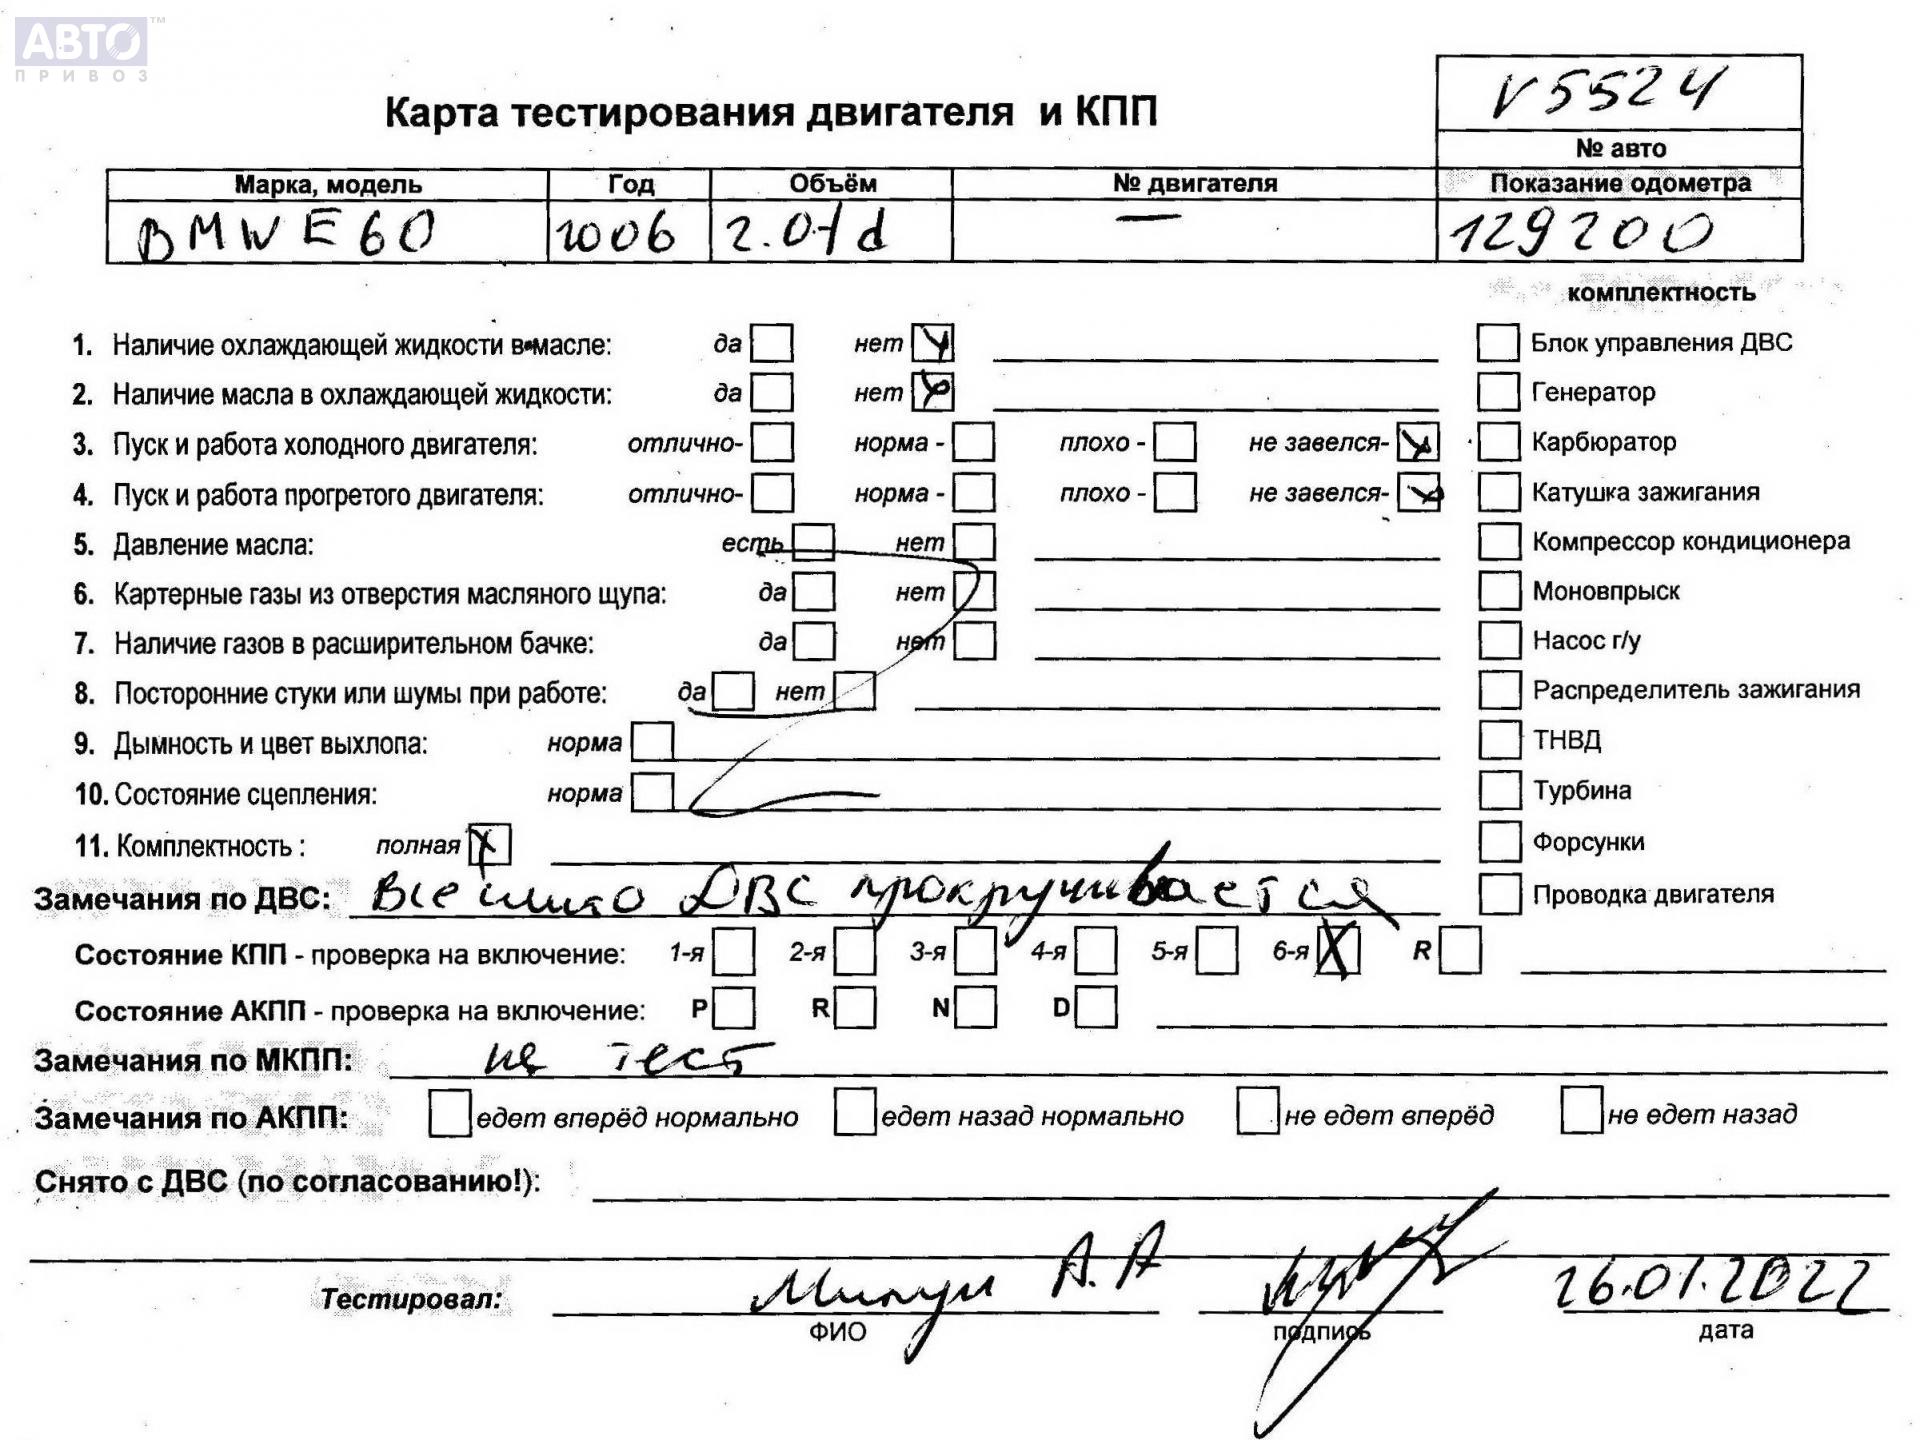 АВТО™
ПРИВОЗ
V5524
Карта тестирования двигателя и КПП
№ авто
Марка, модель Год Объём № двигателя Показание одометра
BMW E60 2006 2.0td — 129200
комплектность
1. Наличие охлаждающей жидкости в масле: да нет Блок управления ДВС
2. Наличие масла в охлаждающей жидкости: да нет Генератор
3. Пуск и работа холодного двигателя: отлично- норма - плохо - не завелся- Карбюратор
4. Пуск и работа прогретого двигателя: отлично- норма - плохо - не завелся- Катушка зажигания
5. Давление масла: есть нет Компрессор кондиционера
6. Картерные газы из отверстия масляного щупа: да нет Моновпрыск
7. Наличие газов в расширительном бачке: да нет Насос г/у
8. Посторонние стуки или шумы при работе: да нет Распределитель зажигания
9. Дымность и цвет выхлопа: норма ТНВД
10. Состояние сцепления: норма Турбина
11. Комплектность : полная Форсунки
Замечания по ДВС: ДВС прокручивается Проводка двигателя
Состояние КПП - проверка на включение: 1-я 2-я 3-я 4-я 5-я 6-я R
Состояние АКПП - проверка на включение: P R N D
Замечания по МКПП: не тест
Замечания по АКПП: едет вперёд нормально едет назад нормально не едет вперёд не едет назад
Снято с ДВС (по согласованию!):
Тестировал: А.А 26.01.2022
ФИО подпись дата